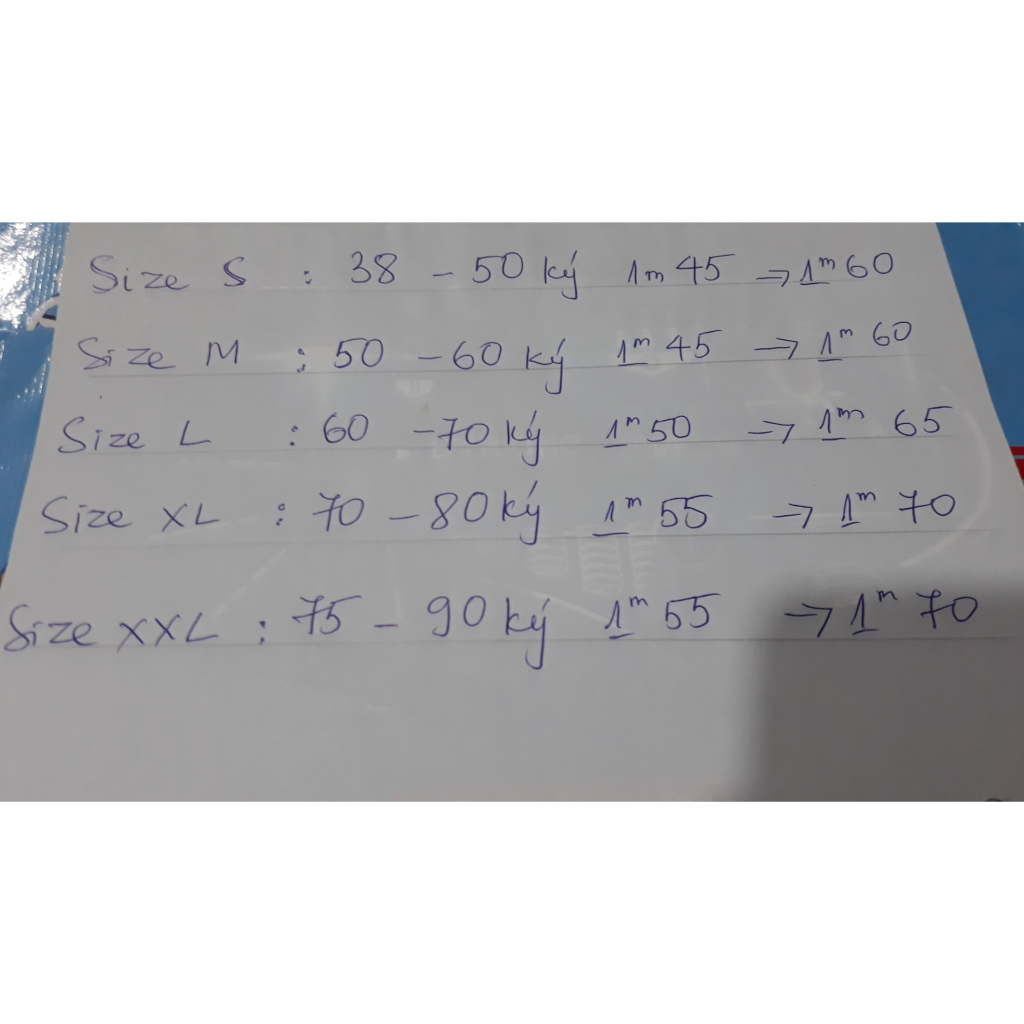 Size S : 38 - 50 ký 1m 45 → 1m 60
Size M : 50 - 60 ký 1m 45 → 1m 60
Size L : 60 - 70 ký 1m 50 → 1m 65
Size XL : 70 - 80 ký 1m 55 → 1m 70
Size XXL : 75 - 90 ký 1m 55 → 1m 70